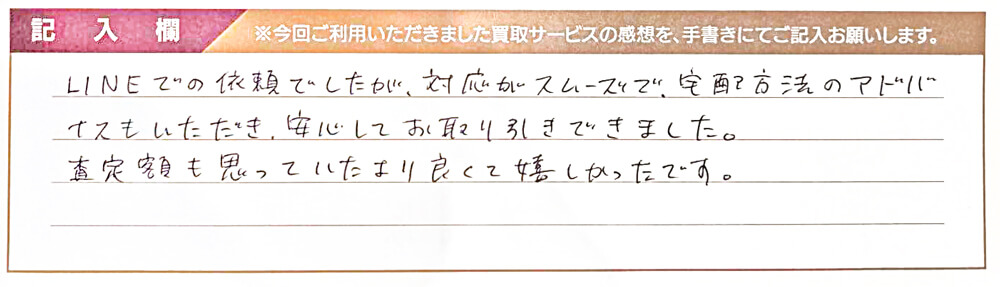 記入欄
※今回ご利用いただきました買取サービスの感想を、手書きにてご記入お願いします。
LINEでの依頼でしたが、対応がスムーズで、宅配方法のアドバ
イスもいただき、安心してお取り引きできました。
査定額も思っていたより良くて嬉しかったです。